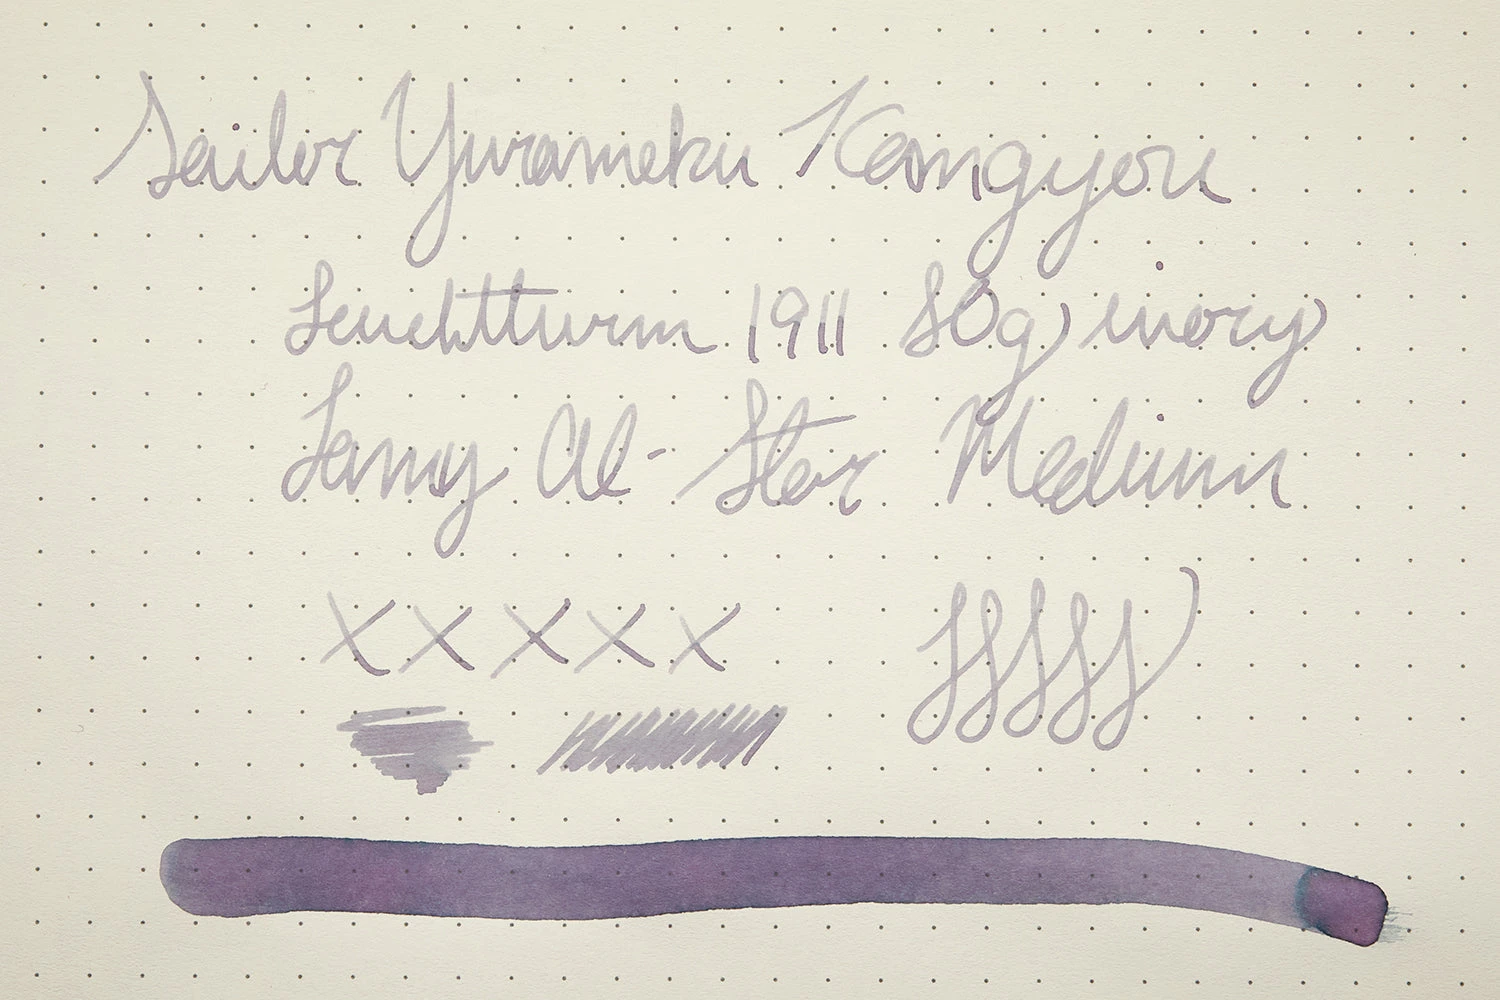 Sailor Yurameku Kangyou
Leuchtturm 1911 80g ivory
Lamy Al-Star Medium
x x x x x